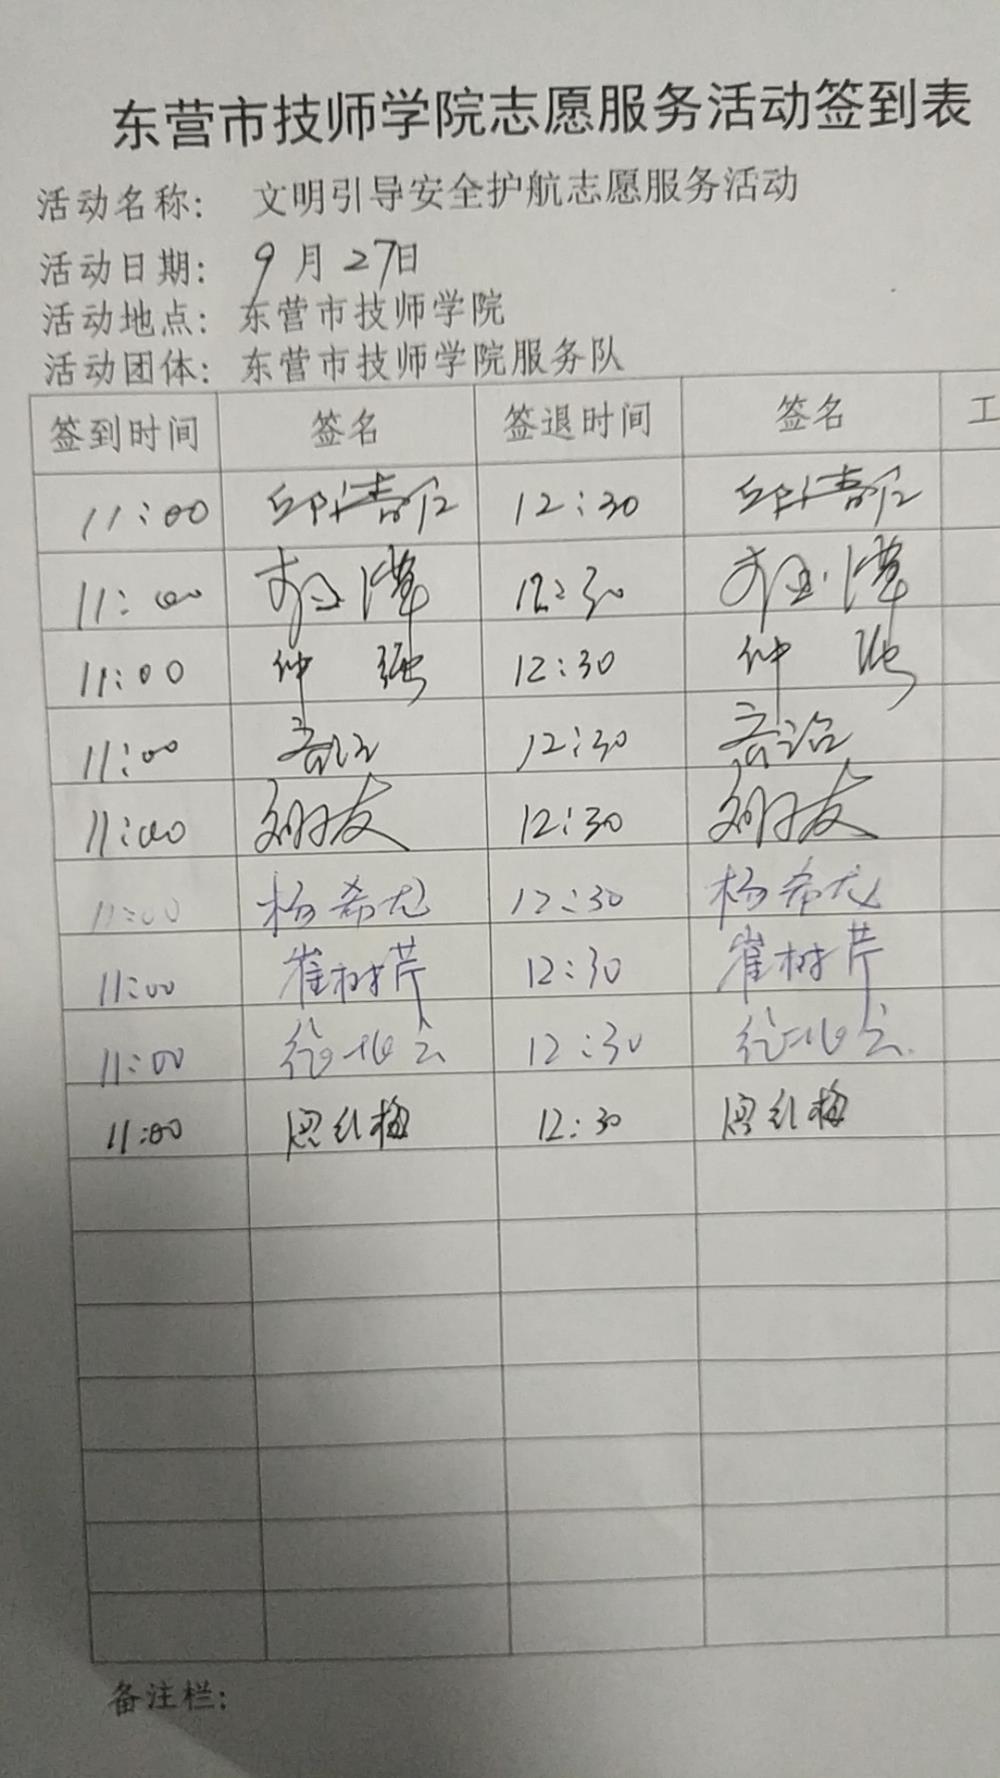 东营市技师学院志愿服务活动签到表
活动名称： 文明引导安全护航志愿服务活动
活动日期： 9月27日
活动地点：东营市技师学院
活动团体：东营市技师学院服务队
签到时间 签名 签退时间 签名 工
11:00 12:30
11:00 12:30
11:00 仲强 12:30 仲强
11:00 12:30
11:00 友 12:30 友
11:00 杨希龙 12:30 杨希龙
11:00 崔树芹 12:30 崔树芹
11:00 12:30
11:00 周红梅 12:30 周红梅
备注栏：